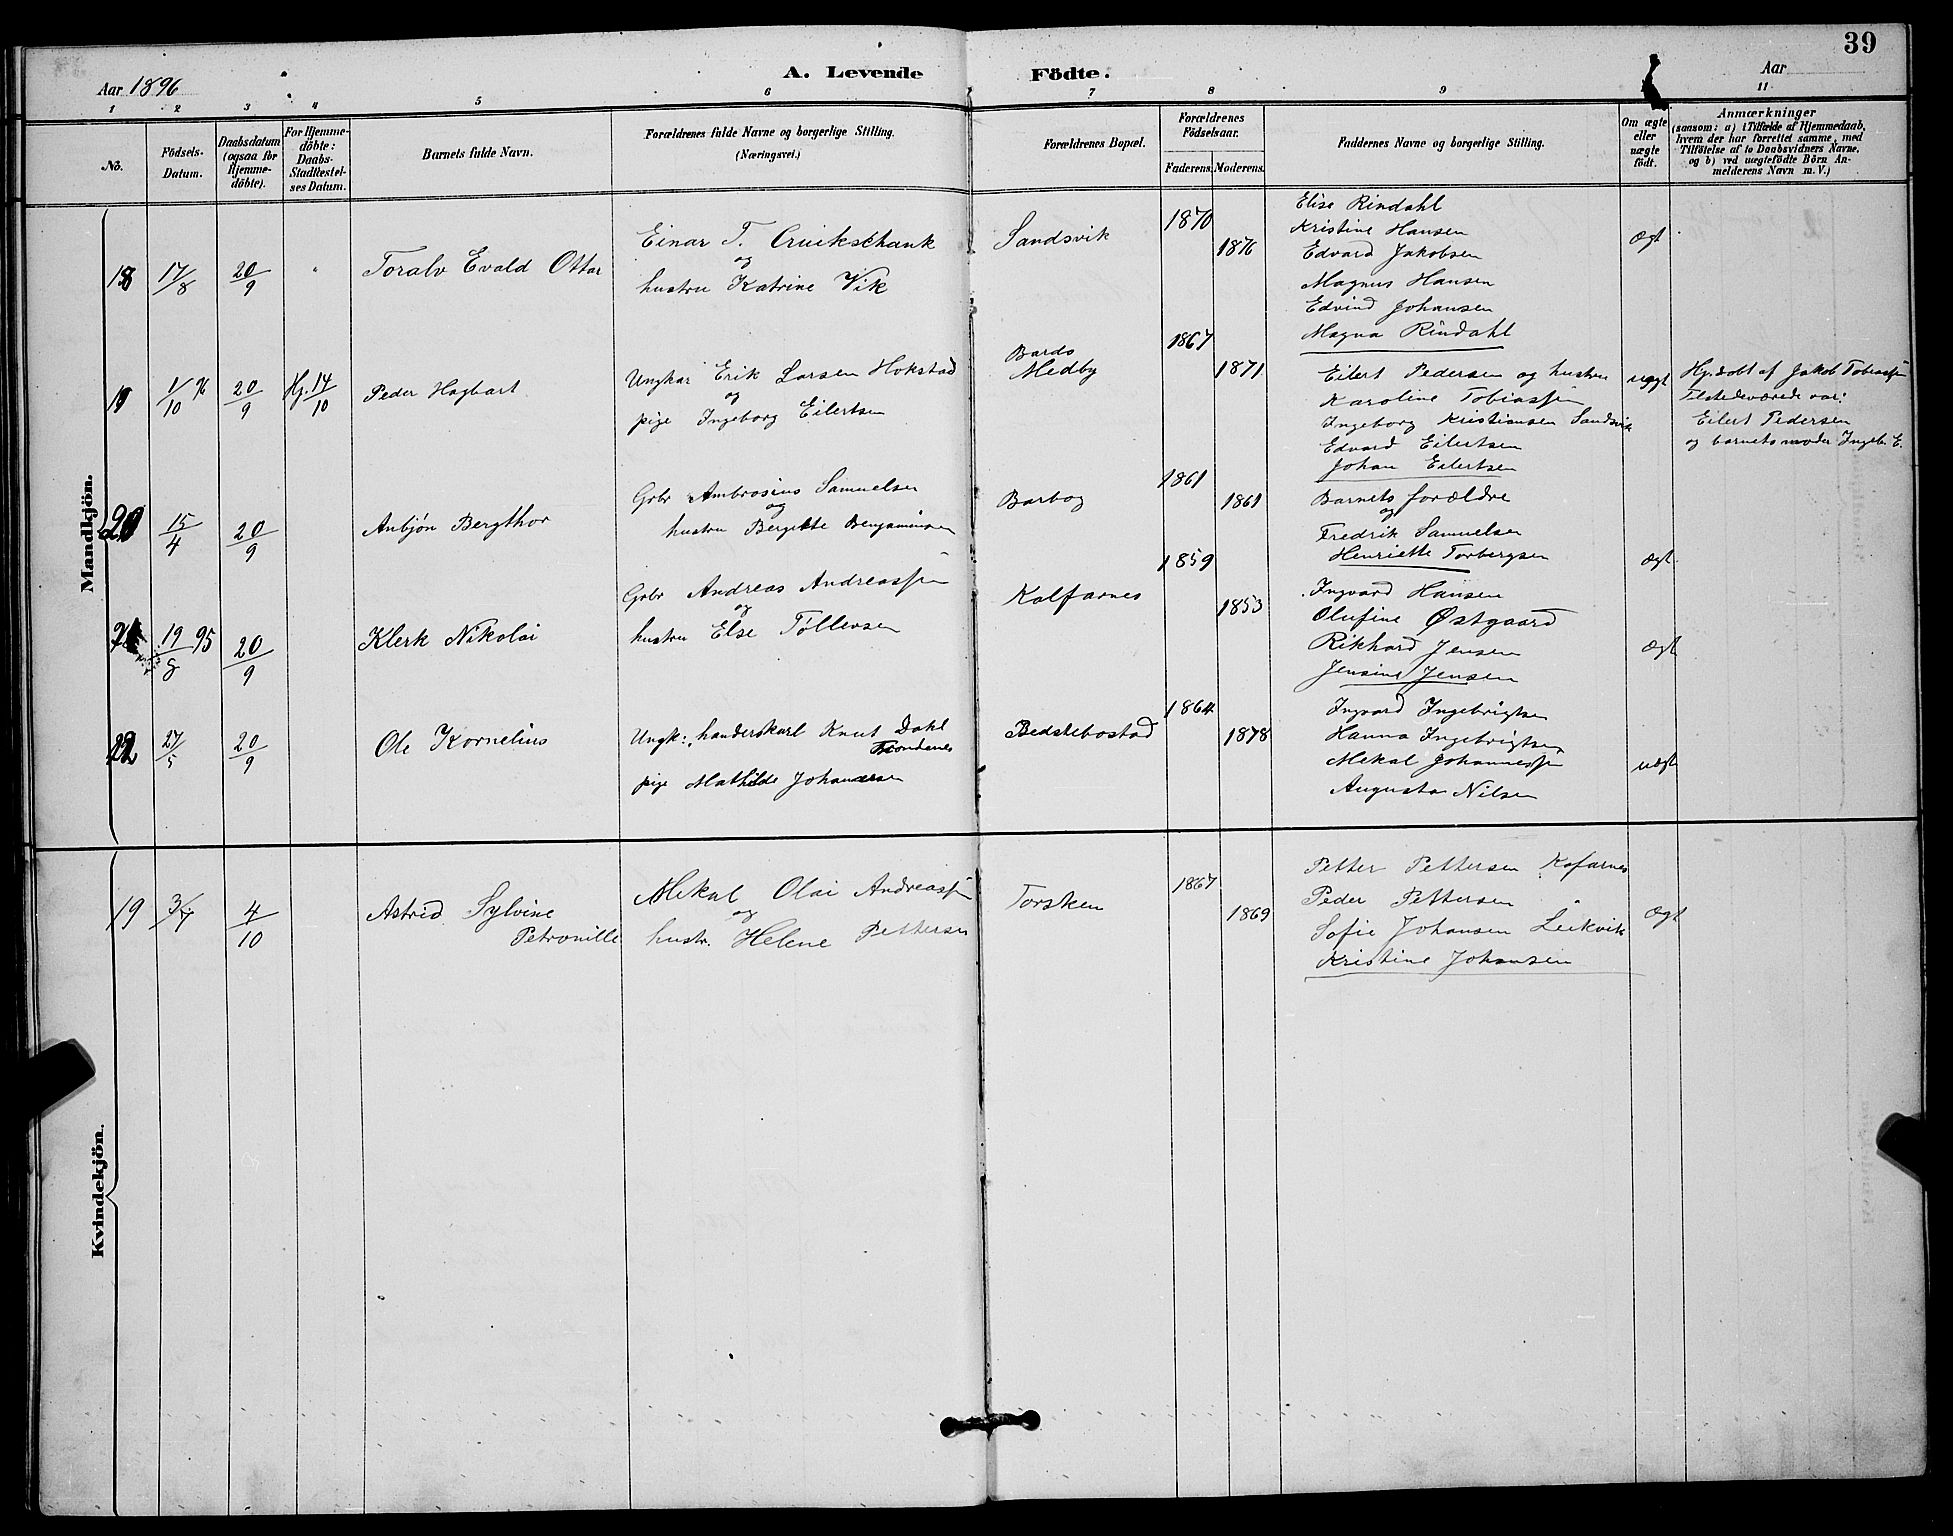 39
Aar 1896
A. Levende Födte.
Aar
1 2 3 4 5 6 7 8 9 11
No.
Födsels-Datum.
Daabsdatum (ogsaa for Hjemme-döbte).
For Hjemme-döbte: Daabs-Stadfæstel-ses Datum.
Barnets fulde Navn.
Forældrenes fulde Navne og borgerlige Stilling. (Næringsvei.)
Forældrenes Bopæl.
Forældrenes Födselsaar.
Faderens. Moderens.
Faddernes Navne og borgerlige Stilling.
Om ægte eller uægte födt.
Anmærkninger
(saasom: a) i Tilfælde af Hjemmedaab,
hvem der har forrettet samme, med
Tilföielse af to Daabsvidners Navne,
og b) ved uægtefödte Börn An-
melderens Navn m. V.)
Mandkjön.
18 17/8 20/9 " Toralv Evald Ottar
Einar T. Cruikschank
og
hustru Katrine Vik
Sandsvik 1870 1876
Elise Rindahl
Kristine Hansen
Edvard Jakobsen
Magnus Hansen
Edvind Johansen
Magna Rindahl
ægt
19 1/10 96 20/9 Hj. 14/10 Peder Hagbart
Ungkar Erik Larsen Hokstad
og
pige Ingeborg Eilertsen
Bardo
Medby 1867 1871
Eilert Pedersen og hustru
Karoline Tobiassen
Ingeborg Kristiansen Sandsvik
Edvard Eilertsen
Johan Eilertsen
uægt
Hj. døbt af Jakob Tobiassen
Tilstedeværede var:
Eilert Pedersen
og barnets moder Ingeb. E.
20 15/4 20/9 Anbjøn Bergthor
Grbr Ambrosius Samuelsen
og
hustru Bergitte Benjaminsen
Barbog 1861 1861
Barnets forældre
og
Fredrik Samuelsen
Henriette Torbergsen
ægt
21 19/8 95 20/9 Klerk Nikolai
Grbr Andreas Andreassen
og
hustru Else Tøllevsen
Kalfarnes 1859 1853
Ingvard Hansen
Olufine Østgaard
Rikhard Jensen
Jensine Jensen
ægt
22 27/5 20/9 Ole Kornelius
Ungk: handerskarl Knut Dahl
Trondenes
pige Mathilde Johansen
Bedstebostad 1864 1878
Ingvard Ingebrigtsen
Hanna Ingebrigtsen
Mekal Johannessen
Augusta Nilsen
uægt
Kvindekjön.
19 3/7 4/10 Astrid Sylvine
Petronille
Mekal Olai Andreassen
og
hustr. Helene Pettersen
Torsken 1867 1869
Petter Pettersen Kafarnes
Peder Pettersen
Sofie Johansen Leikvik
Kristine Johansen
ægt